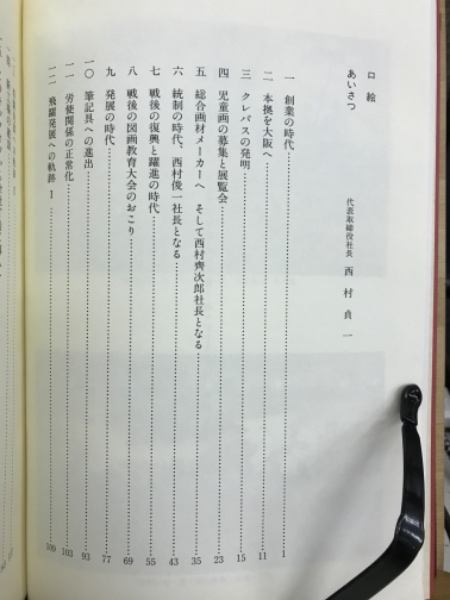 口絵
あいさつ
代表取締役社長 西村貞一
一 創業の時代 1
二 本拠を大阪へ 11
三 クレパスの発明 15
四 児童画の募集と展覧会 23
五 総合画材メーカーへ そして西村齊次郎社長となる 35
六 統制の時代、西村俊一社長となる 43
七 戦後の復興と躍進の時代 55
八 戦後の図画教育大会のおこり 69
九 発展の時代 77
一〇 筆記具への進出 93
一一 労使関係の正常化 103
一二 飛躍発展への軌跡 Ⅰ 109